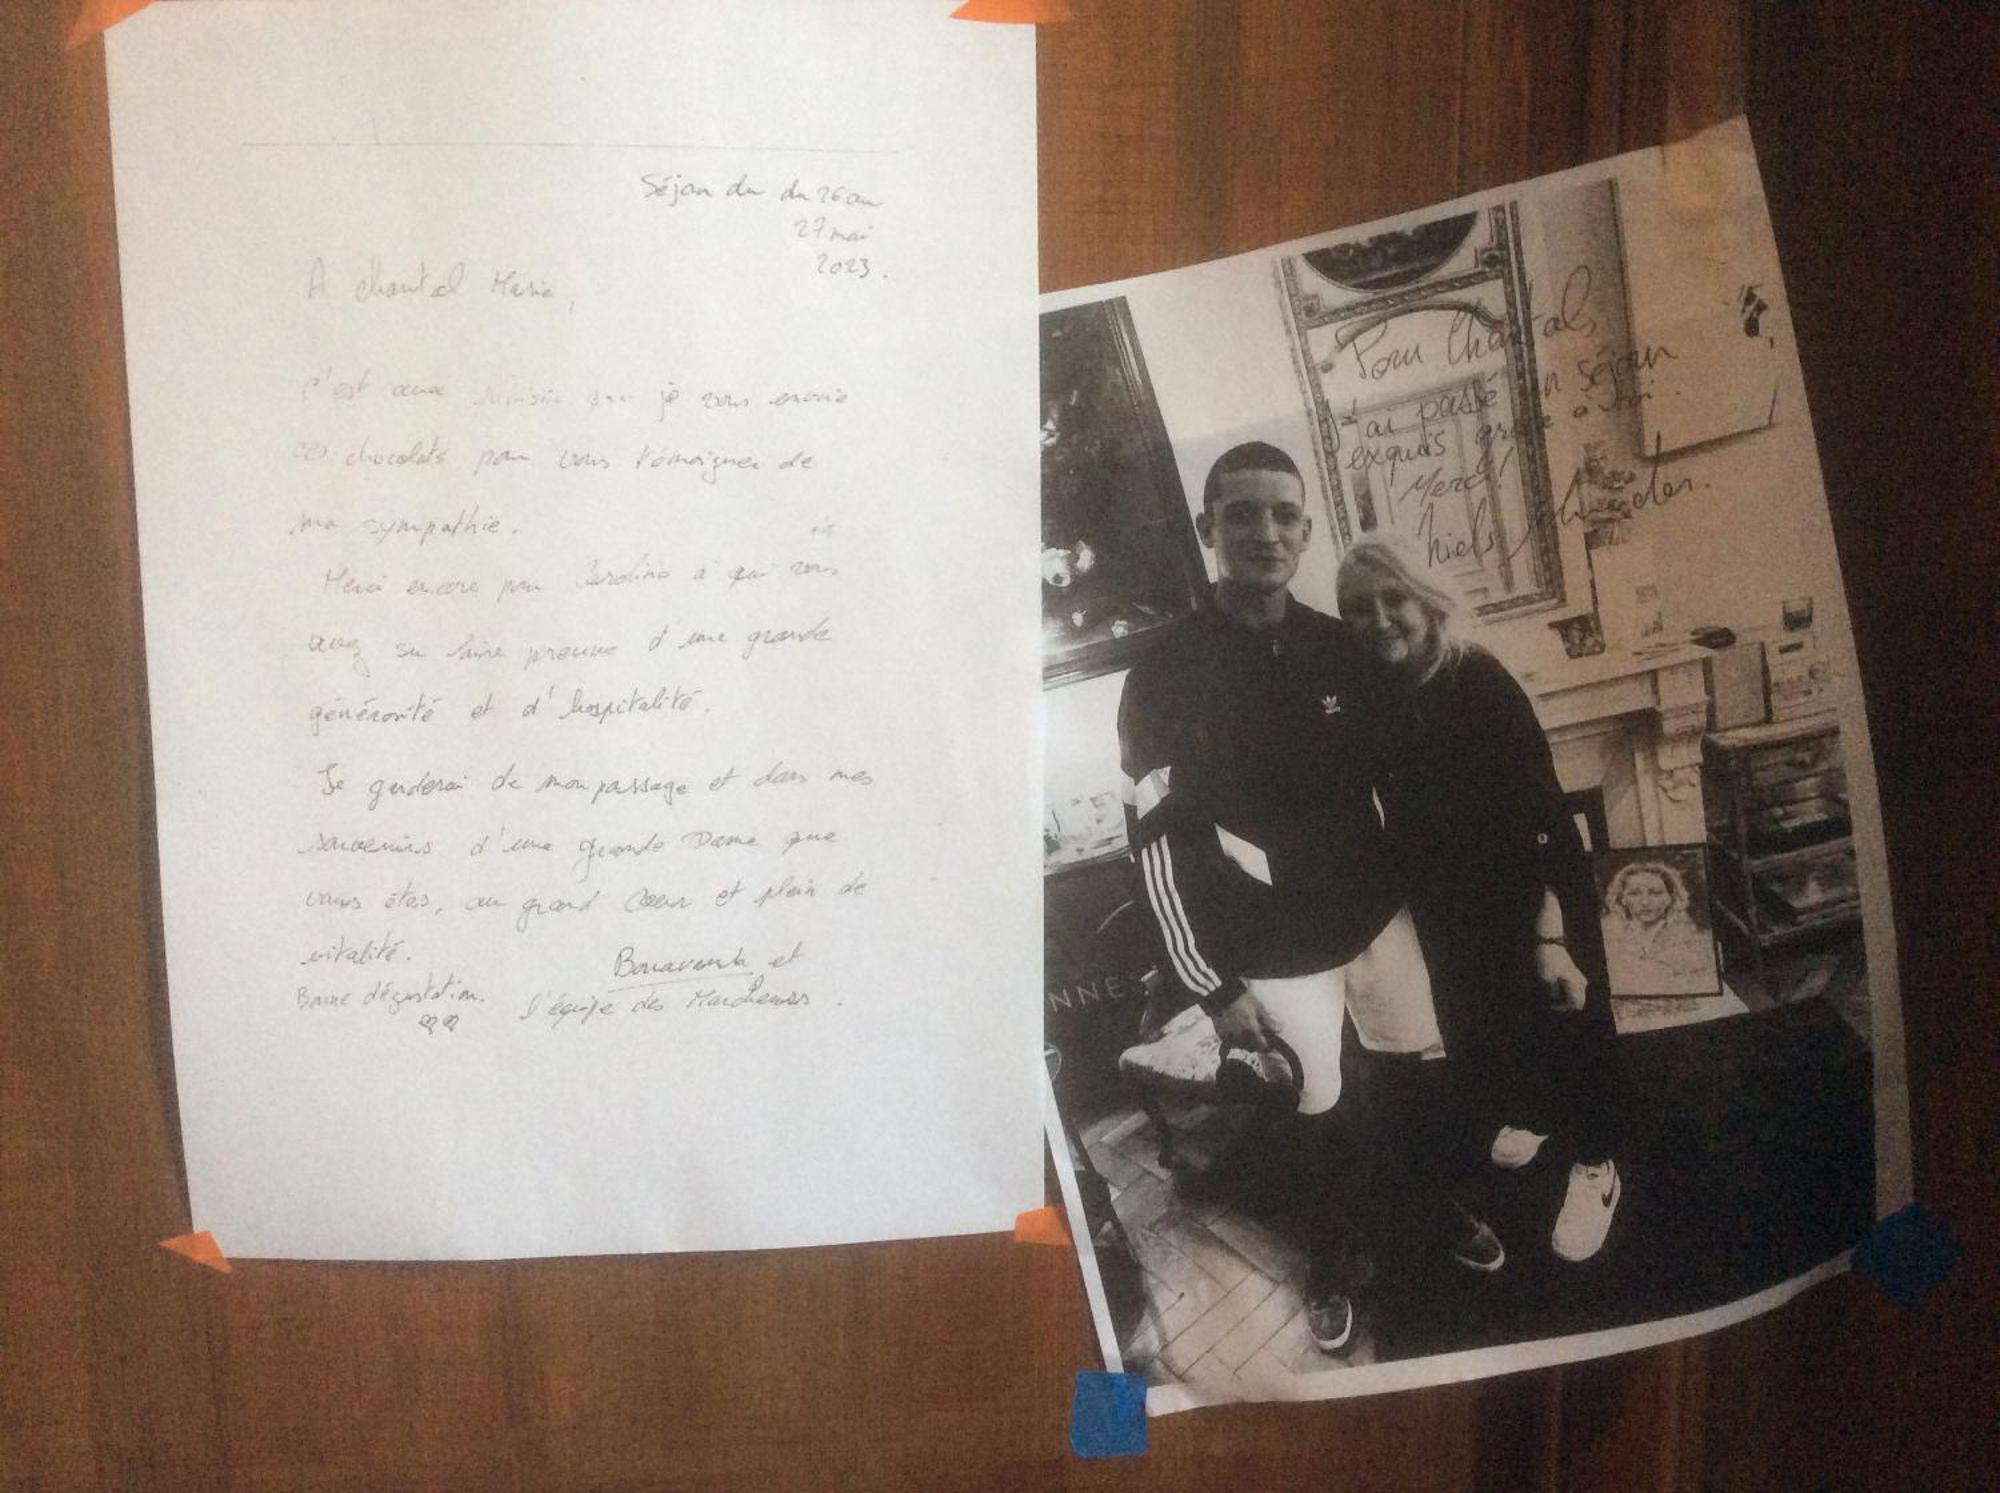 Séjour du du 26 au
27 mai
2023.
A Chantal Marie,
C'est avec je vous envoie
ces chocolats pour vous témoigner de
ma sympathie.
Merci encore pour à qui vous
avez su faire preuve d'une grande
générosité et d'hospitalité.
Je garderai de mon passage et dans mes
souvenirs d'une grande Dame que
vous êtes, au grand Coeur et plein de
vitalité.
Bonne dégustation.
et
l'équipe des
Pour Chantal,
J'ai passé un séjour
exquis grâce à toi.
Merci!
Niels
NNE